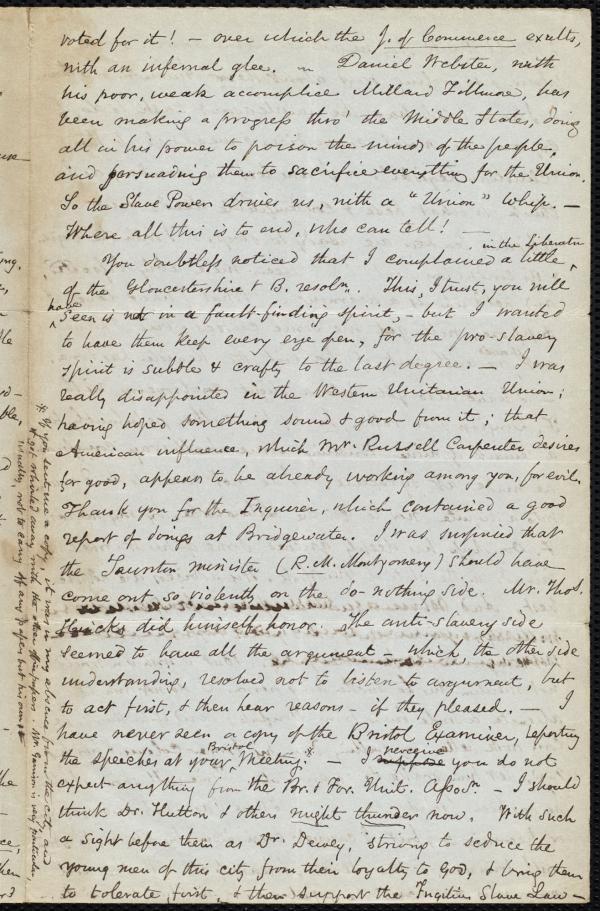 voted for it! — over which the J. of Commerce exults,
with an infernal glee. — Daniel Webster, with
his poor, weak accomplice Millard Fillmore, has
been making a progress thro' the Middle States, doing
all in his power to poison the minds of the people,
and persuading them to sacrifice everything for the Union.
So the Slave Power drives us, with a "Union" whip. —
Where all this is to end, who can tell! —
You doubtless noticed that I complained in the Liberator a little
of the Gloucestershire & B. resoln. This, I trust, you will
have seen is not in a fault-finding spirit, — but I wanted
to have them keep every eye open, for the pro-slavery
spirit is subtle & crafty to the last degree. — I was
really disappointed in the Western Unitarian Union;
having hoped something sound & good from it; that
American influence, which Mr. Russell Carpenter desires
for good, appears to be already working among you, for evil.
Thank you for the Inquirer, which contained a good
report of doings at Bridgewater. I was surprised that
the Taunton minister (R. M. Montgomery) should have
come out so violently on the do-nothing side. Mr. Thos.
Hincks did himself honor. The anti-slavery side
seemed to have all the argument — which, the other side
understanding, resolved not to listen to argument, but
to act first, & then hear reasons — if they pleased. — I
have never seen a copy of the Bristol Examiner, reporting
the speeches at your Bristol Meeting.* — I suppose perceive you do not
expect anything from the Br. & For. Unit. Assocn. — I should
think Dr. Hutton & others might thunder now. With such
a sight before them as Dr. Dewey, striving to seduce the
young men of this city from their loyalty to God, & bring them
to tolerate, first, & then support the Fugitive Slave Law —
* If you sent me a copy, it was in my absence from the city, and
got whirled away with the other papers. Mr. Garrison is very particular,
usually, not to carry off any papers but his own.